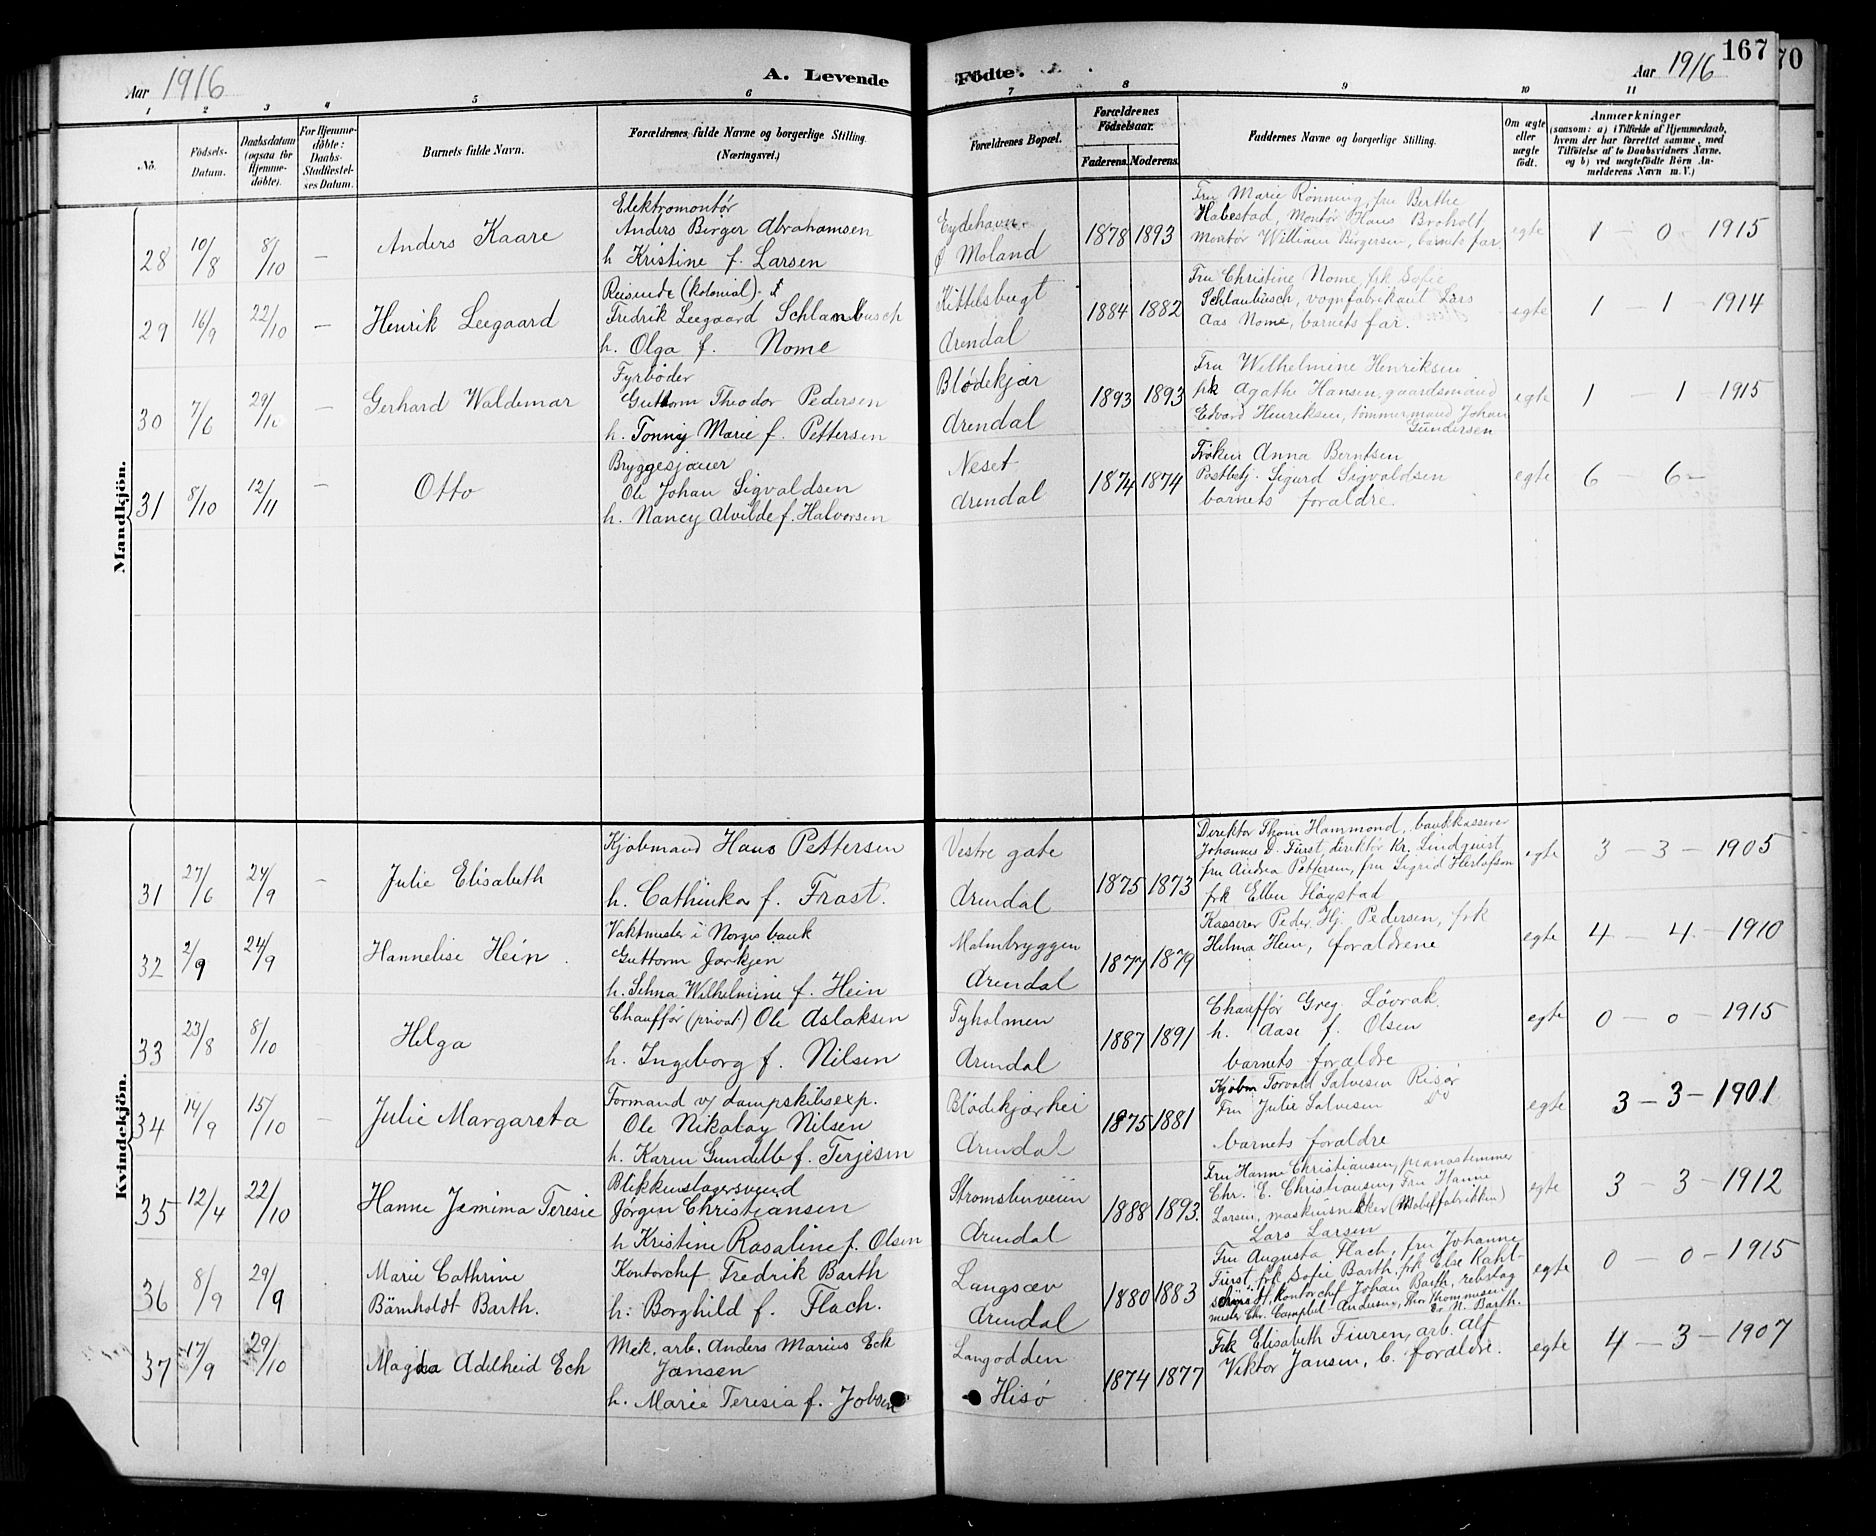 167
70
Aar 1916
A. Levende
Födte.
Aar 1916
1 2 3 4 5 6 7 8 9 10 11
No.
Födsels-
Datum.
Daabsdatum
(ogsaa for
Hjemme-
döbte).
For Hjemme-
döbte:
Daabs-
Stadfæstel-
ses Datum.
Barnets fulde Navn.
Forældrenes fulde Navne og borgerlige Stilling.
(Næringsvei.)
Forældrenes Bopæl.
Forældrenes
Födselsaar.
Faderens. Moderens.
Faddernes Navne og borgerlige Stilling.
Om ægte
eller
uægte
født.
Anmærkninger
(saasom: a) i Tilfælde af Hjemmedaab,
hvem der har forrettet samme, med
Tilføielse af to Daabsvidners Navne,
og b) ved uægtefödte Börn An-
melderens Navn m. V.)
Mandkjön.
28 10/8 8/10 — Anders Kaare
Elektromontör
Anders Birger Abrahamsen
h Kristine f. Larsen
Eydehavn
Ø Moland
1878 1893
Fru Marie Rönning, fru Berthe
Habestad, Montør Hans Broholt
Montør William Birgersen, barnets far
egte
1 — 0 — 1915
29 16/9 22/10 — Henrik Leegaard
Reisende (kolonial)
Fredrik Leegaard Schlanbusch
h. Olga f. Nome
Kittelsbugt
Arendal
1884 1882
Fru Christine Nome, frk Sofie
Schlanbusch, vognfabrikant Lars
Aas Nome, barnets far.
egte
1 — 1 — 1914
30 7/6 29/10 — Gerhard Waldemar
Fyrböder
Guttorm Theodor Pedersen
h. Tonny Marie f. Pettersen
Blödekjær
Arendal
1893 1893
Fru Wilhelmine Henriksen
frk Agathe Hansen, gaardsmand
Edvard Henriksen, tömmermand Johan
Gundersen
egte
1 — 1 — 1915
31 8/10 12/11 — Otto
Bryggesjauer
Ole Johan Sigvaldsen
h. Nancy Alvilde f. Halvorsen
Neset
Arendal
1874 1874
Fröken Anna Berntsen
Postbetj. Sigurd Sigvaldsen
barnets foraldre.
egte
6 — 6 —
Kvindekjön.
31 27/6 24/9 — Julie Elisabeth
Kjøbmand Hans Pettersen
h. Cathinka f. Frost.
Vestre gate
Arendal
1875 1873
Direktør Thom Hammond, bankkasserer
Johannes D. Fürst, direktør Kr. Lindquist
fru Andrea Pettersen, fru Sigrid
frk Ellen Fløystad
egte
3 — 3 — 1905
32 2/9 24/9 Hannelise Hein.
Vaktmester i Norges bank
Guttorm Jorkjen
h. Selma Wilhelmine f. Hein
Malmbryggen
Arendal
1877 1879
Kasserer Peder Hj. Pedersen, frk
Helma Hein, foraldrene
egte
4 — 4 — 1910
33 23/8 8/10 Helga
Chauffør (privat) Ole Aslaksen
h. Ingeborg f. Nilsen
Tyholmen
Arendal
1887 1891
Chauffør Greg. Lövrak
h. Aase f. Olsen
barnets foraldre
egte
0 — 0 — 1915
34 14/9 15/10 — Julie Margareta
Formand v/ dampskibsexp.
Ole Nikolay Nilsen
h. Karen Gundelle f. Terjesen
Blödekjær hei
Arendal
1875 1881
Kjøbm Torvald Salvesen Risør
Fru Julie Salvesen do
barnets foraldre
egte
3 — 3 — 1901
35 12/4 22/10 Hanne Jemima Teresie
Blikkenslagersvend
Jørgen Christiansen
h Kristine Rosaline f. Olsen
Strømsbuveien
Arendal
1888 1893.
Fru Hanne Christiansen, pianostemmer
Chr. E. Christiansen, Fru Hanne
Larsen, maskinsnekker (Möbelfabrikken)
Lars Larsen
egte
3 — 3 — 1912
36 8/9 29/9 Marie Cathrine
Bärnholdt Barth.
Kontorchef Fredrik Barth
h. Borghild f. Flach.
Langsæv
Arendal
1880 1883
Fru Augusta Flach, fru Johanne
Fürst, frk Sofie Barth, frk Else Kahl-
kontorchef Johan Barth, rebslag
mester Chr. Campbel Andersen, Thor Thommesen
N. Barth.
egte
0 — 0 — 1915
37 17/9 29/10 Magda Adelheid Eck
Mek. arb. Anders Marius Eck
Jansen
h. Marie Teresia f. Jobsen
Langodden
Hisø
1874 1877
Frk Elisabeth Fiuren, arb. Alf
Viktor Jansen, b. foraldre.
egte
4 — 3 — 1907